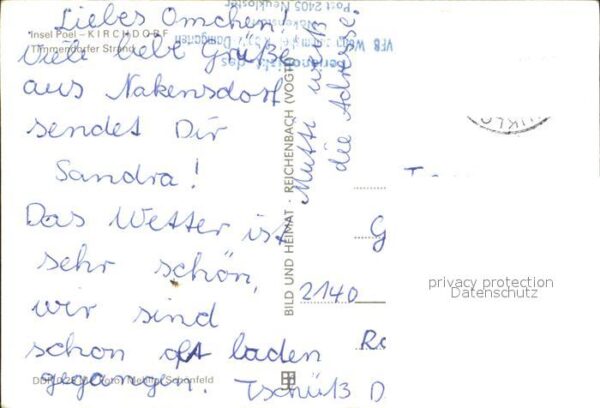 Liebes Omchen!
Insel Poel - KIRCHDORF
Timmendorfer Strand
viele liebe Grüße
aus Nakensdorf
sendet Dir
Sandra!
Das Wetter ist
sehr schön,
wir sind
schon oft baden
gegangen. Tschüß D
Foto: Schönfeld
Mutti weiß
die Adresse.
BILD UND HEIMAT · REICHENBACH (VOGTL)
Post 2405 Neukloster
Nakensdorf
VEB
Damgarten
2140
G
Ro
privacy protection
Datenschutz